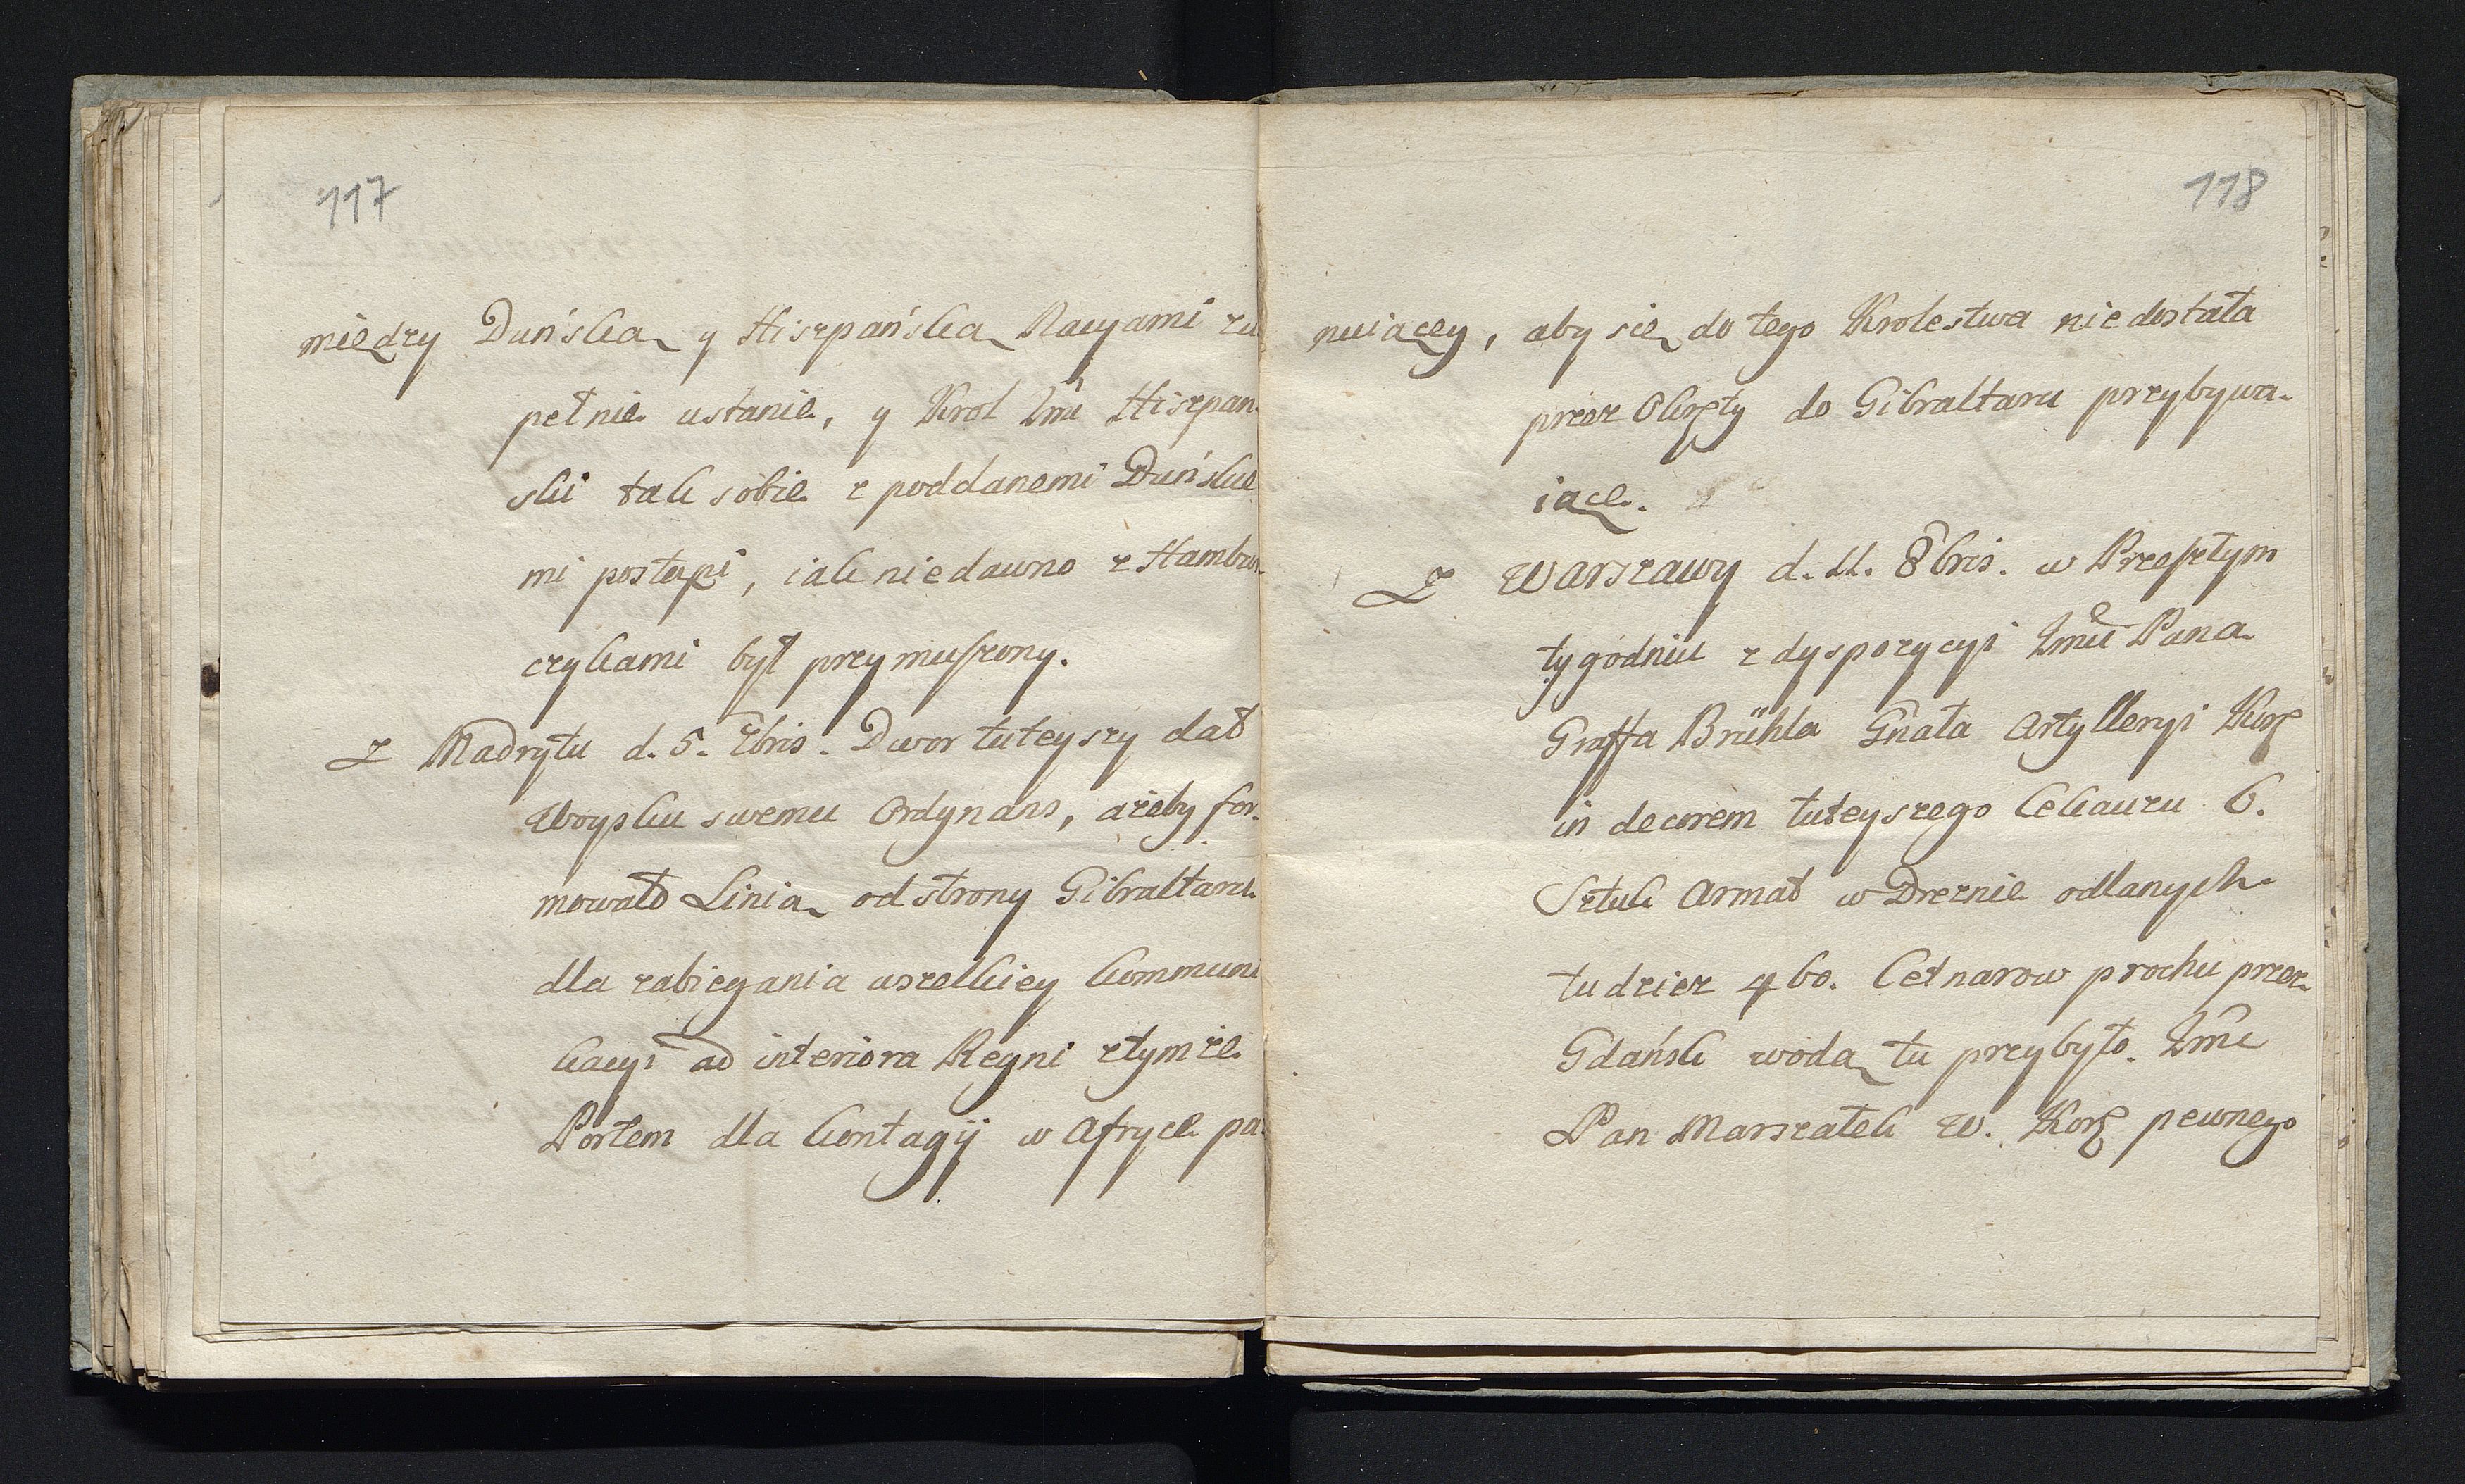 117
między Duńską y Hiszpańską Nacyami zu
pełnie ustanie, y Krol Jmć Hiszpań-
ski tak sobie z poddanemi Duńskie
mi postąpi, iak niedawno z Hambur-
czykami był przymuszony.
Z Madrytu d. 5. 7bris. Dwor tuteyszy dał
Woysku swemu Ordynans, ażeby for-
mowało Linią od strony Gibraltaru
dla zabiegania wszelkiey kommuni
kacyi ad interiora Regni z tymże
Portem dla kontagij w Afryce pa-
118
nuiącey, aby się do tego Krolestwa nie dostała
przez Okręty do Gibraltaru przybywa-
iące.
Z Warszawy d. 11. 8bris. w Przeszłym
tygodniu z dyspozycyi Jmci Pana
Graffa Brühla Gnała Artylleryi Kor
in decorem tuteyszego Cekauzu 6.
Sztuk Armat w Dreznie odlanych
tudziez 460. Cetnarow prochu przez
Gdańsk wodą tu przybyło. Jmć
Pan Marszałek W. Kor pewnego